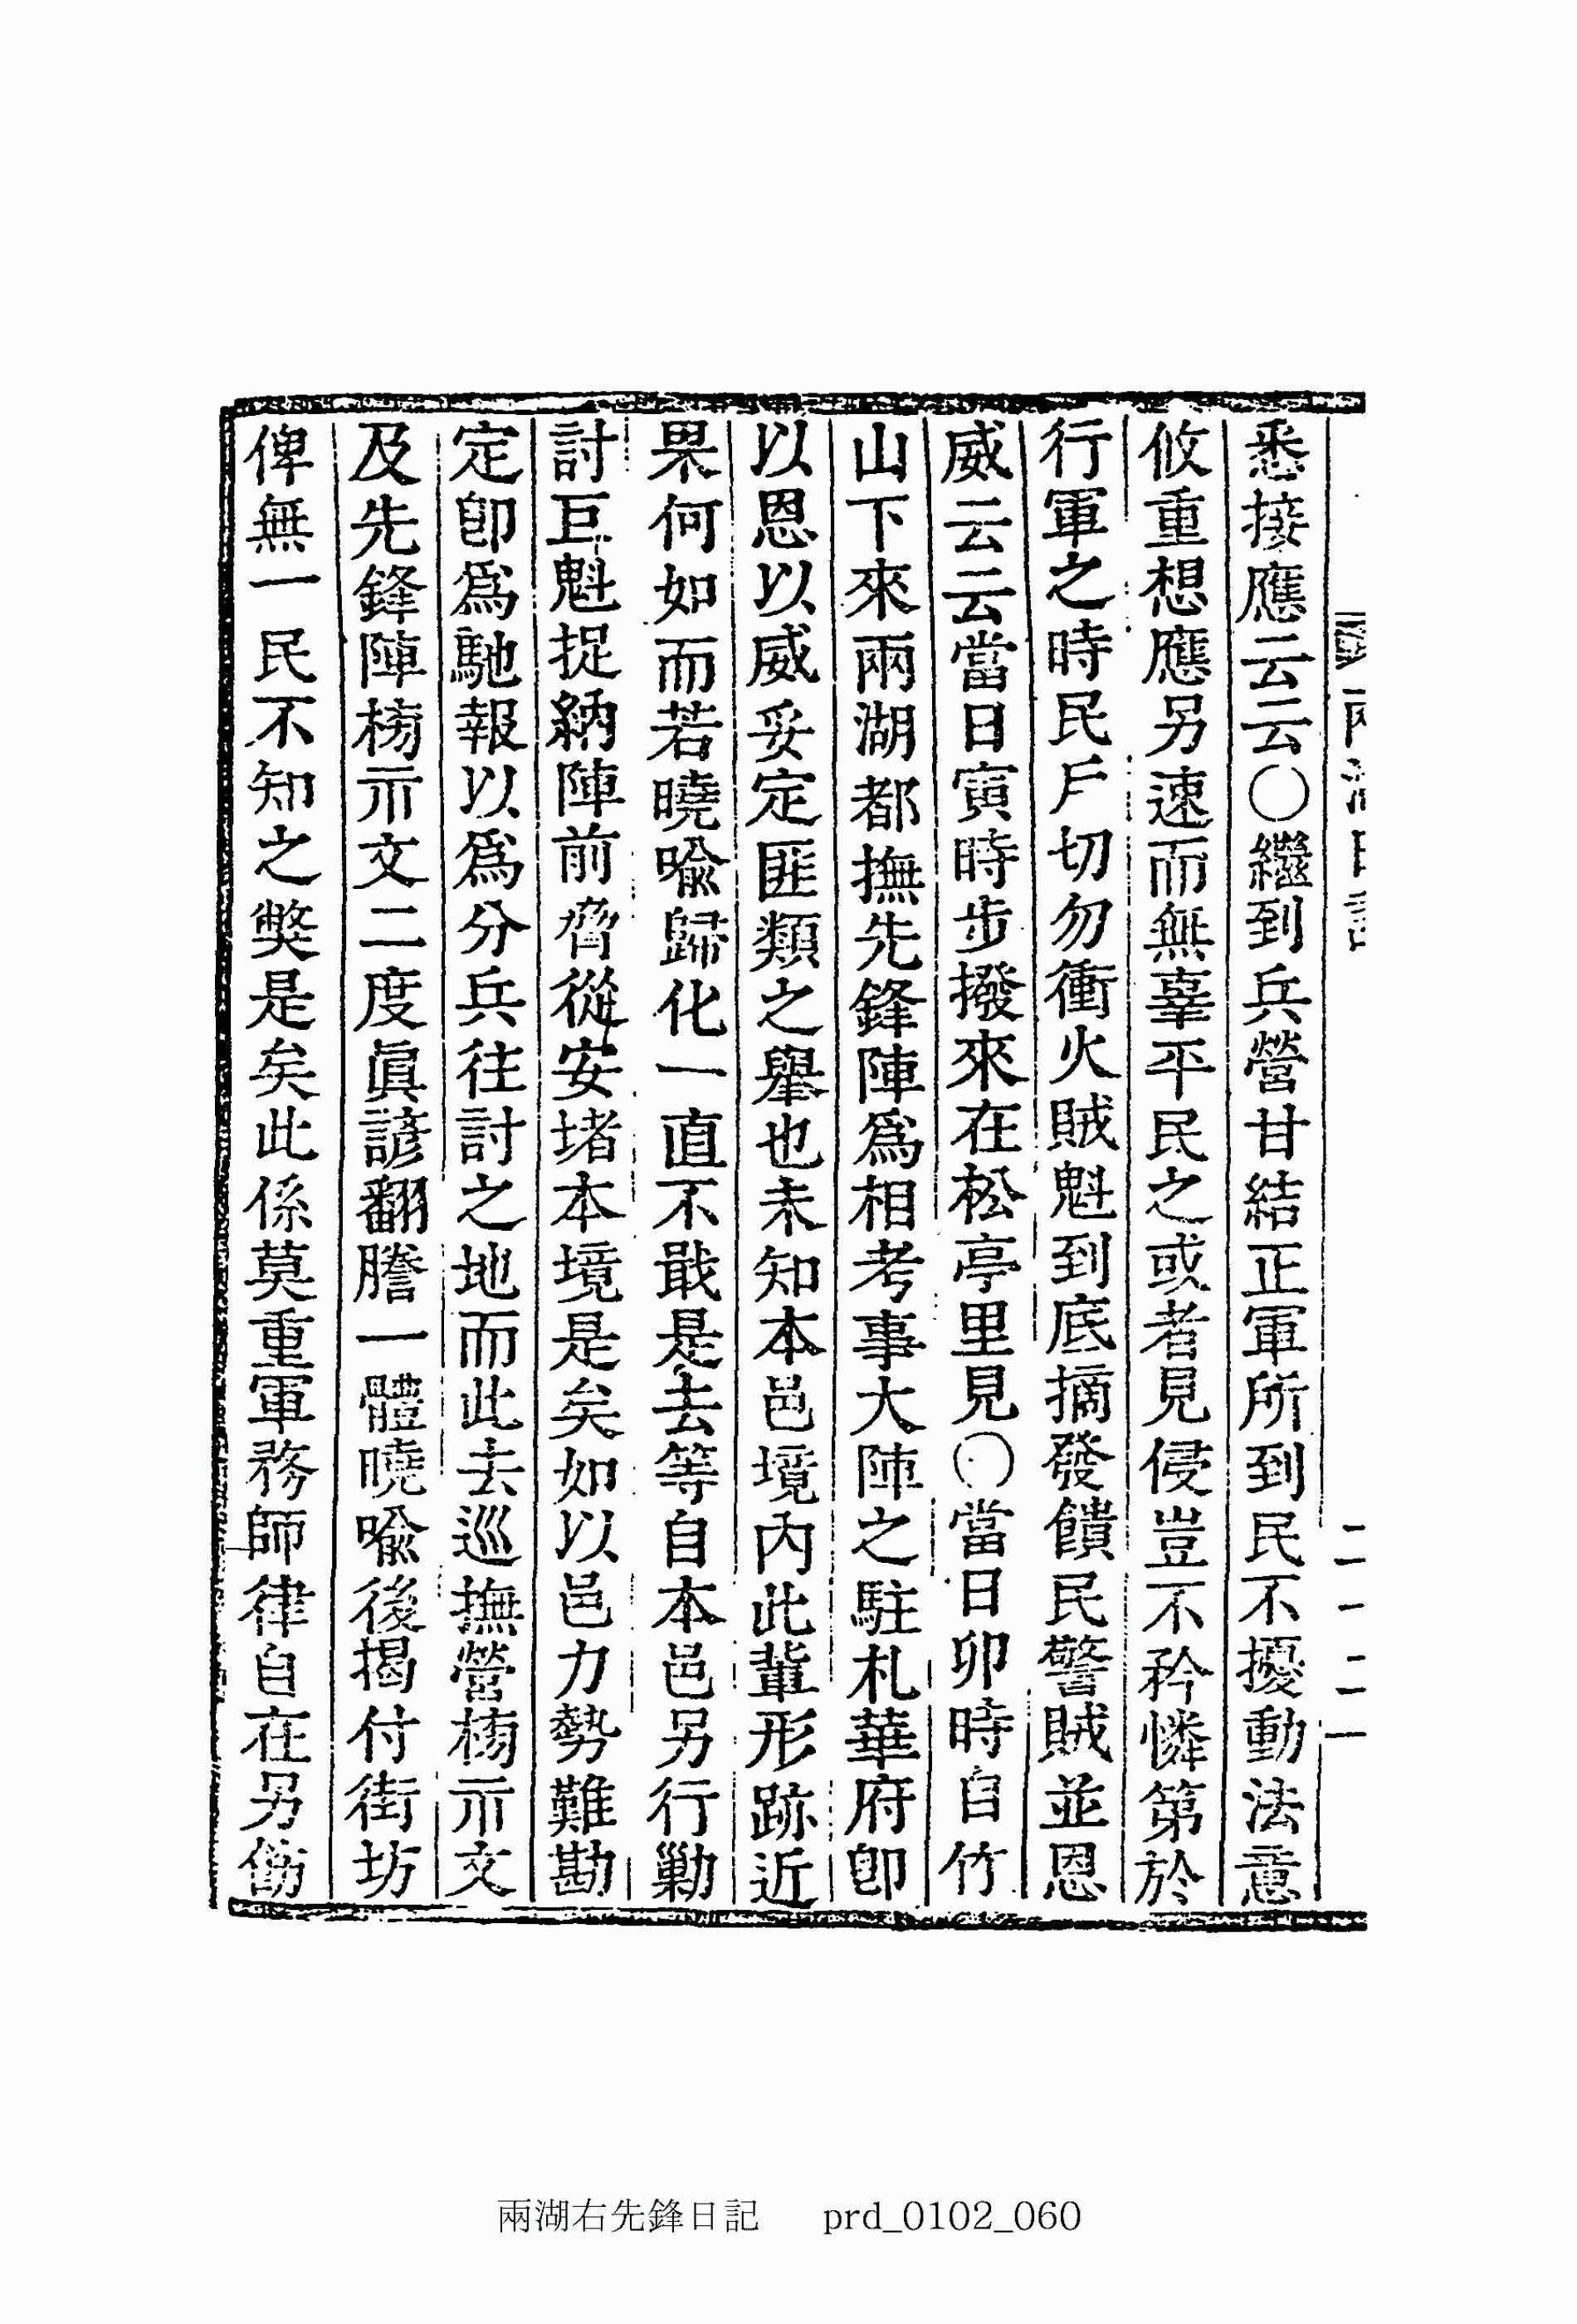 悉接應云云○繼到兵營甘結正軍所到民不擾動法意
攸重想應另速而無辜平民之或者見侵豈不矜憐第於
行軍之時民戶切勿衝火賊魁到底摘發饋民警賊並恩
威云云當日寅時步撥來在松亭里見○當日卯時自竹
山下來兩湖都撫先鋒陣爲相考事大陣之駐札華府卽
以恩以威妥定匪類之擧也未知本邑境內此輩形跡近
果何如而若曉喩歸化一直不戢是去等自本邑另行勦
討巨魁捉納陣前脅從安堵本境是矣如以邑力勢難勘
定卽爲馳報以爲分兵往討之地而此去巡撫營榜示文
及先鋒陣榜示文二度眞諺翻謄一體曉喩後揭付街坊
俾無一民不知之獘是矣此係莫重軍務師律自在另飭
兩湖右先鋒日記 prd_0102_060